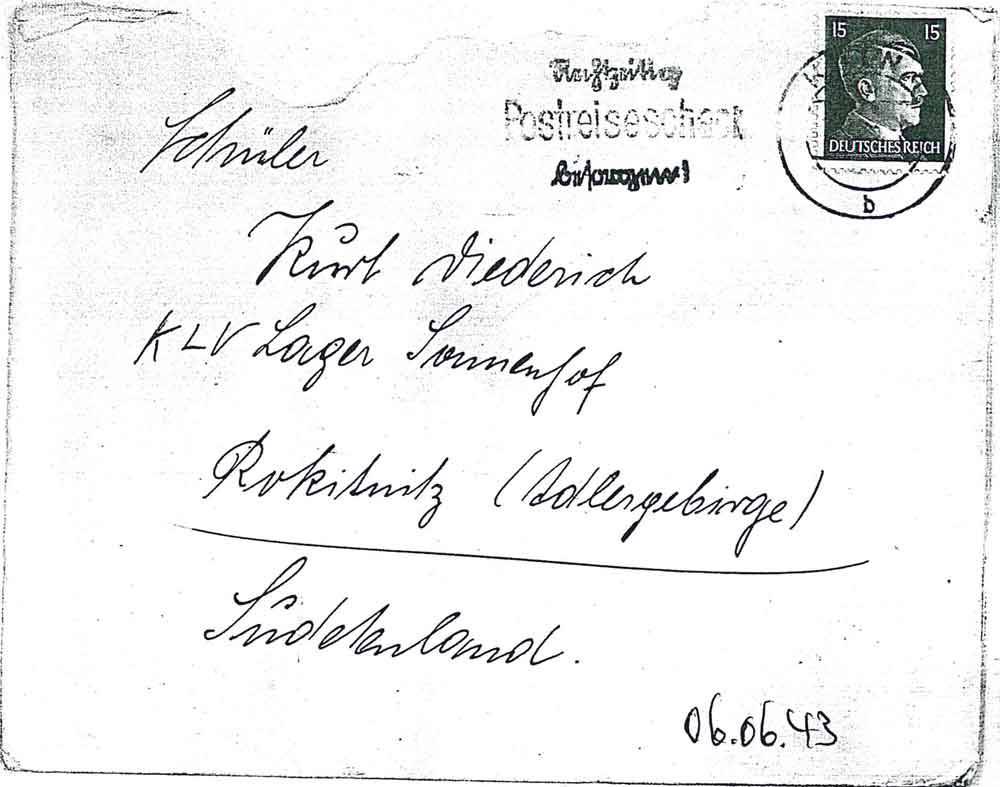 15 15
DEUTSCHES REICH
Rechtzeitig
Postreisescheck
besorgen!
b
Schüler
Kurt Diederich
KLV Lager Sonnenhof
Rokitnitz (Adlergebirge)
Sudetenland.
06.06.43